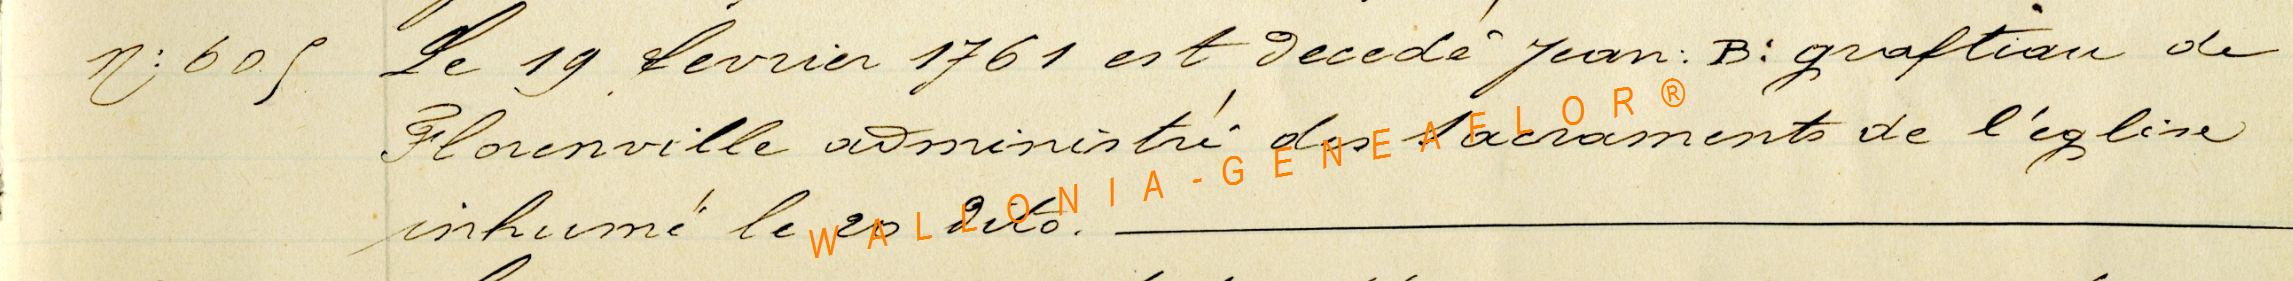 N: 605 Le 19 fevrier 1761 est decedé Jean: B: graftiau de
Florenville administré des Sacraments de l'église
inhumé le 20 dito.
WALLONIA-GENEAFLOR®